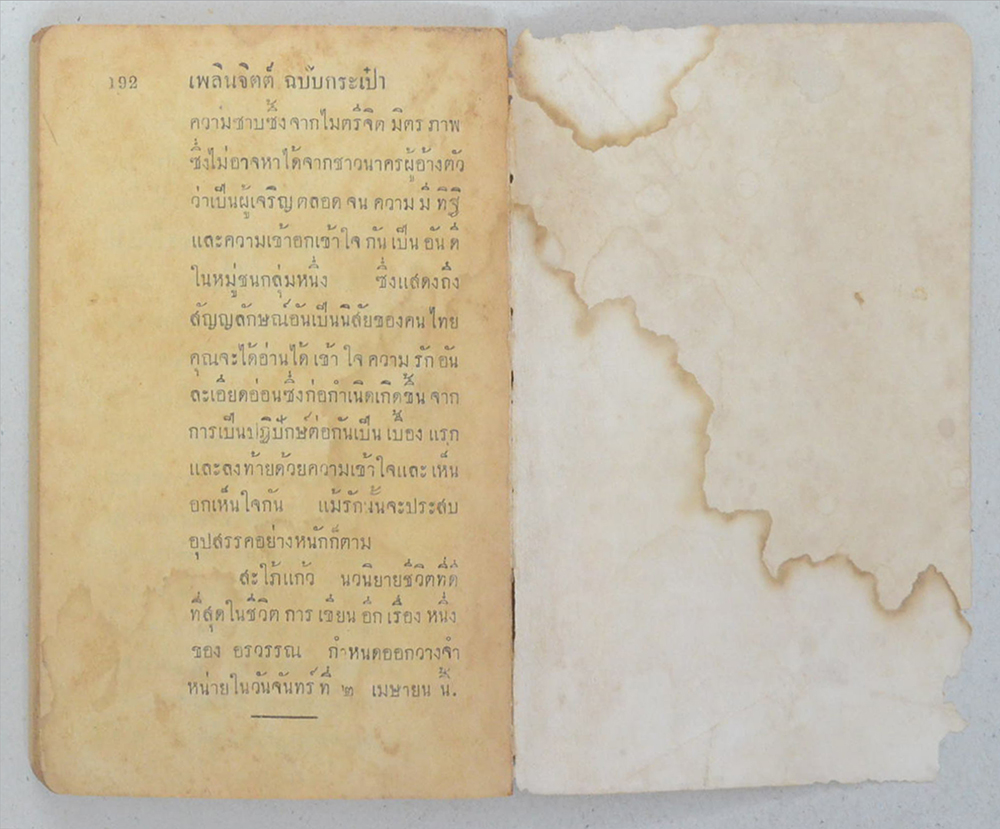 192 เพลินจิตต์ ฉบับกระเป๋า
ความซาบซึ้งจากไมตรีจิต มิตร ภาพ
ซึ่งไม่อาจหาได้จากชาวนาครผู้อ้างตัว
ว่าเป็นผู้เจริญ ตลอด จน ความ มี ทิฐิ
และความเข้าอกเข้าใจ กัน เป็น อัน ดี
ในหมู่ชนกลุ่มหนึ่ง ซึ่งแสดงถึง
สัญญลักษณ์อันเป็นนิสัยของคน ไทย
คุณจะได้อ่านได้ เข้า ใจ ความ รัก อัน
ละเอียดอ่อนซึ่งก่อกำเนิดเกิดขึ้น จาก
การเป็นปฏิปักษ์ต่อกันเป็น เบื้อง แรก
และลงท้ายด้วยความเข้าใจและ เห็น
อกเห็นใจกัน แม้รักนั้นจะประสบ
อุปสรรคอย่างหนักก็ตาม
สะใภ้แก้ว นวนิยายชีวิตที่ดี
ที่สุดในชีวิต การ เขียน อีก เรื่อง หนึ่ง
ของ อรวรรณ กำหนดออกวางจำ
หน่ายในวันจันทร์ ที่ ๒ เมษายน นี้.